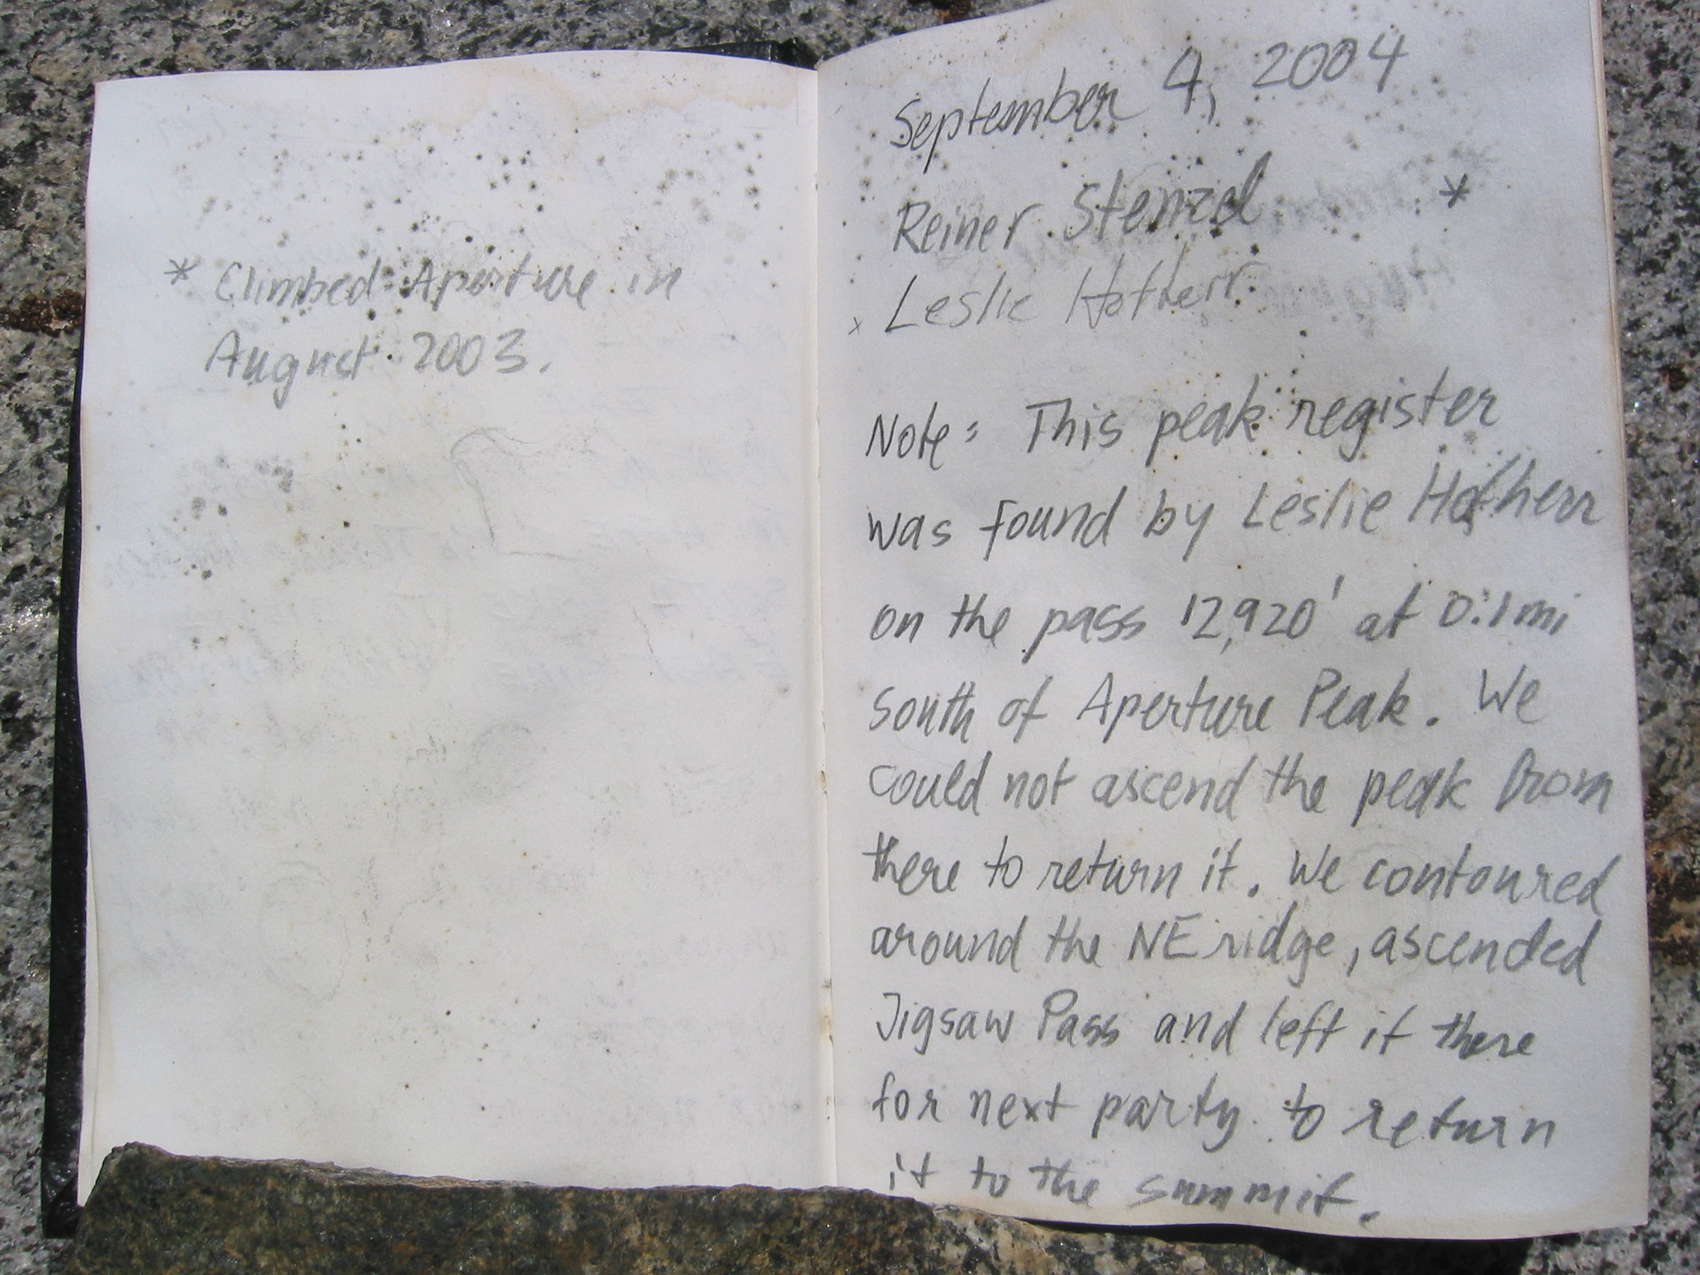 * Climbed Aperture in
August 2003.
September 4, 2004
Reiner Stenzel *
x Leslie Hofherr
Note: This peak register
was found by Leslie Hofherr
on the pass 12,920' at 0.1 mi
south of Aperture Peak. We
could not ascend the peak from
there to return it. We contoured
around the NE ridge, ascended
Jigsaw Pass and left it there
for next party to return
it to the summit.